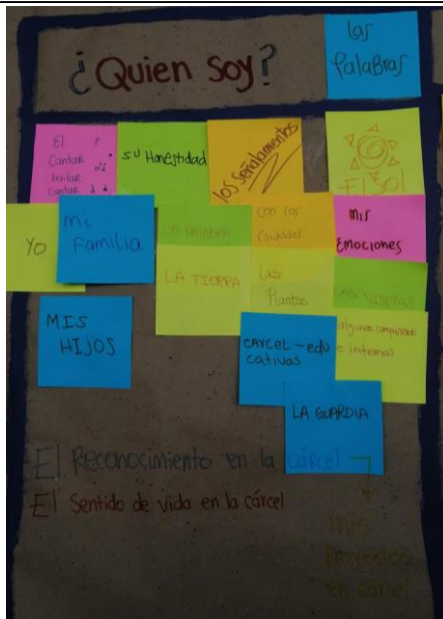 ¿Quien Soy?
las
PalaBras
El
Cantar
bailar
Cantar
sU Honestidad
los Señalamientos
El Sol
YO
mi
Familia
LA PALABRA
con los
Cuidados
mis
Emociones
LA TIERRA
Las
Plantas
LAS VISITAS
MIS
HIJOS
CARCEL - edu
cativas
algunas compañeras
e internas
LA GUARDIA
El Reconocimiento en la cárcel
El Sentido de vida en la cárcel
mis
Proyectos
en cárcel